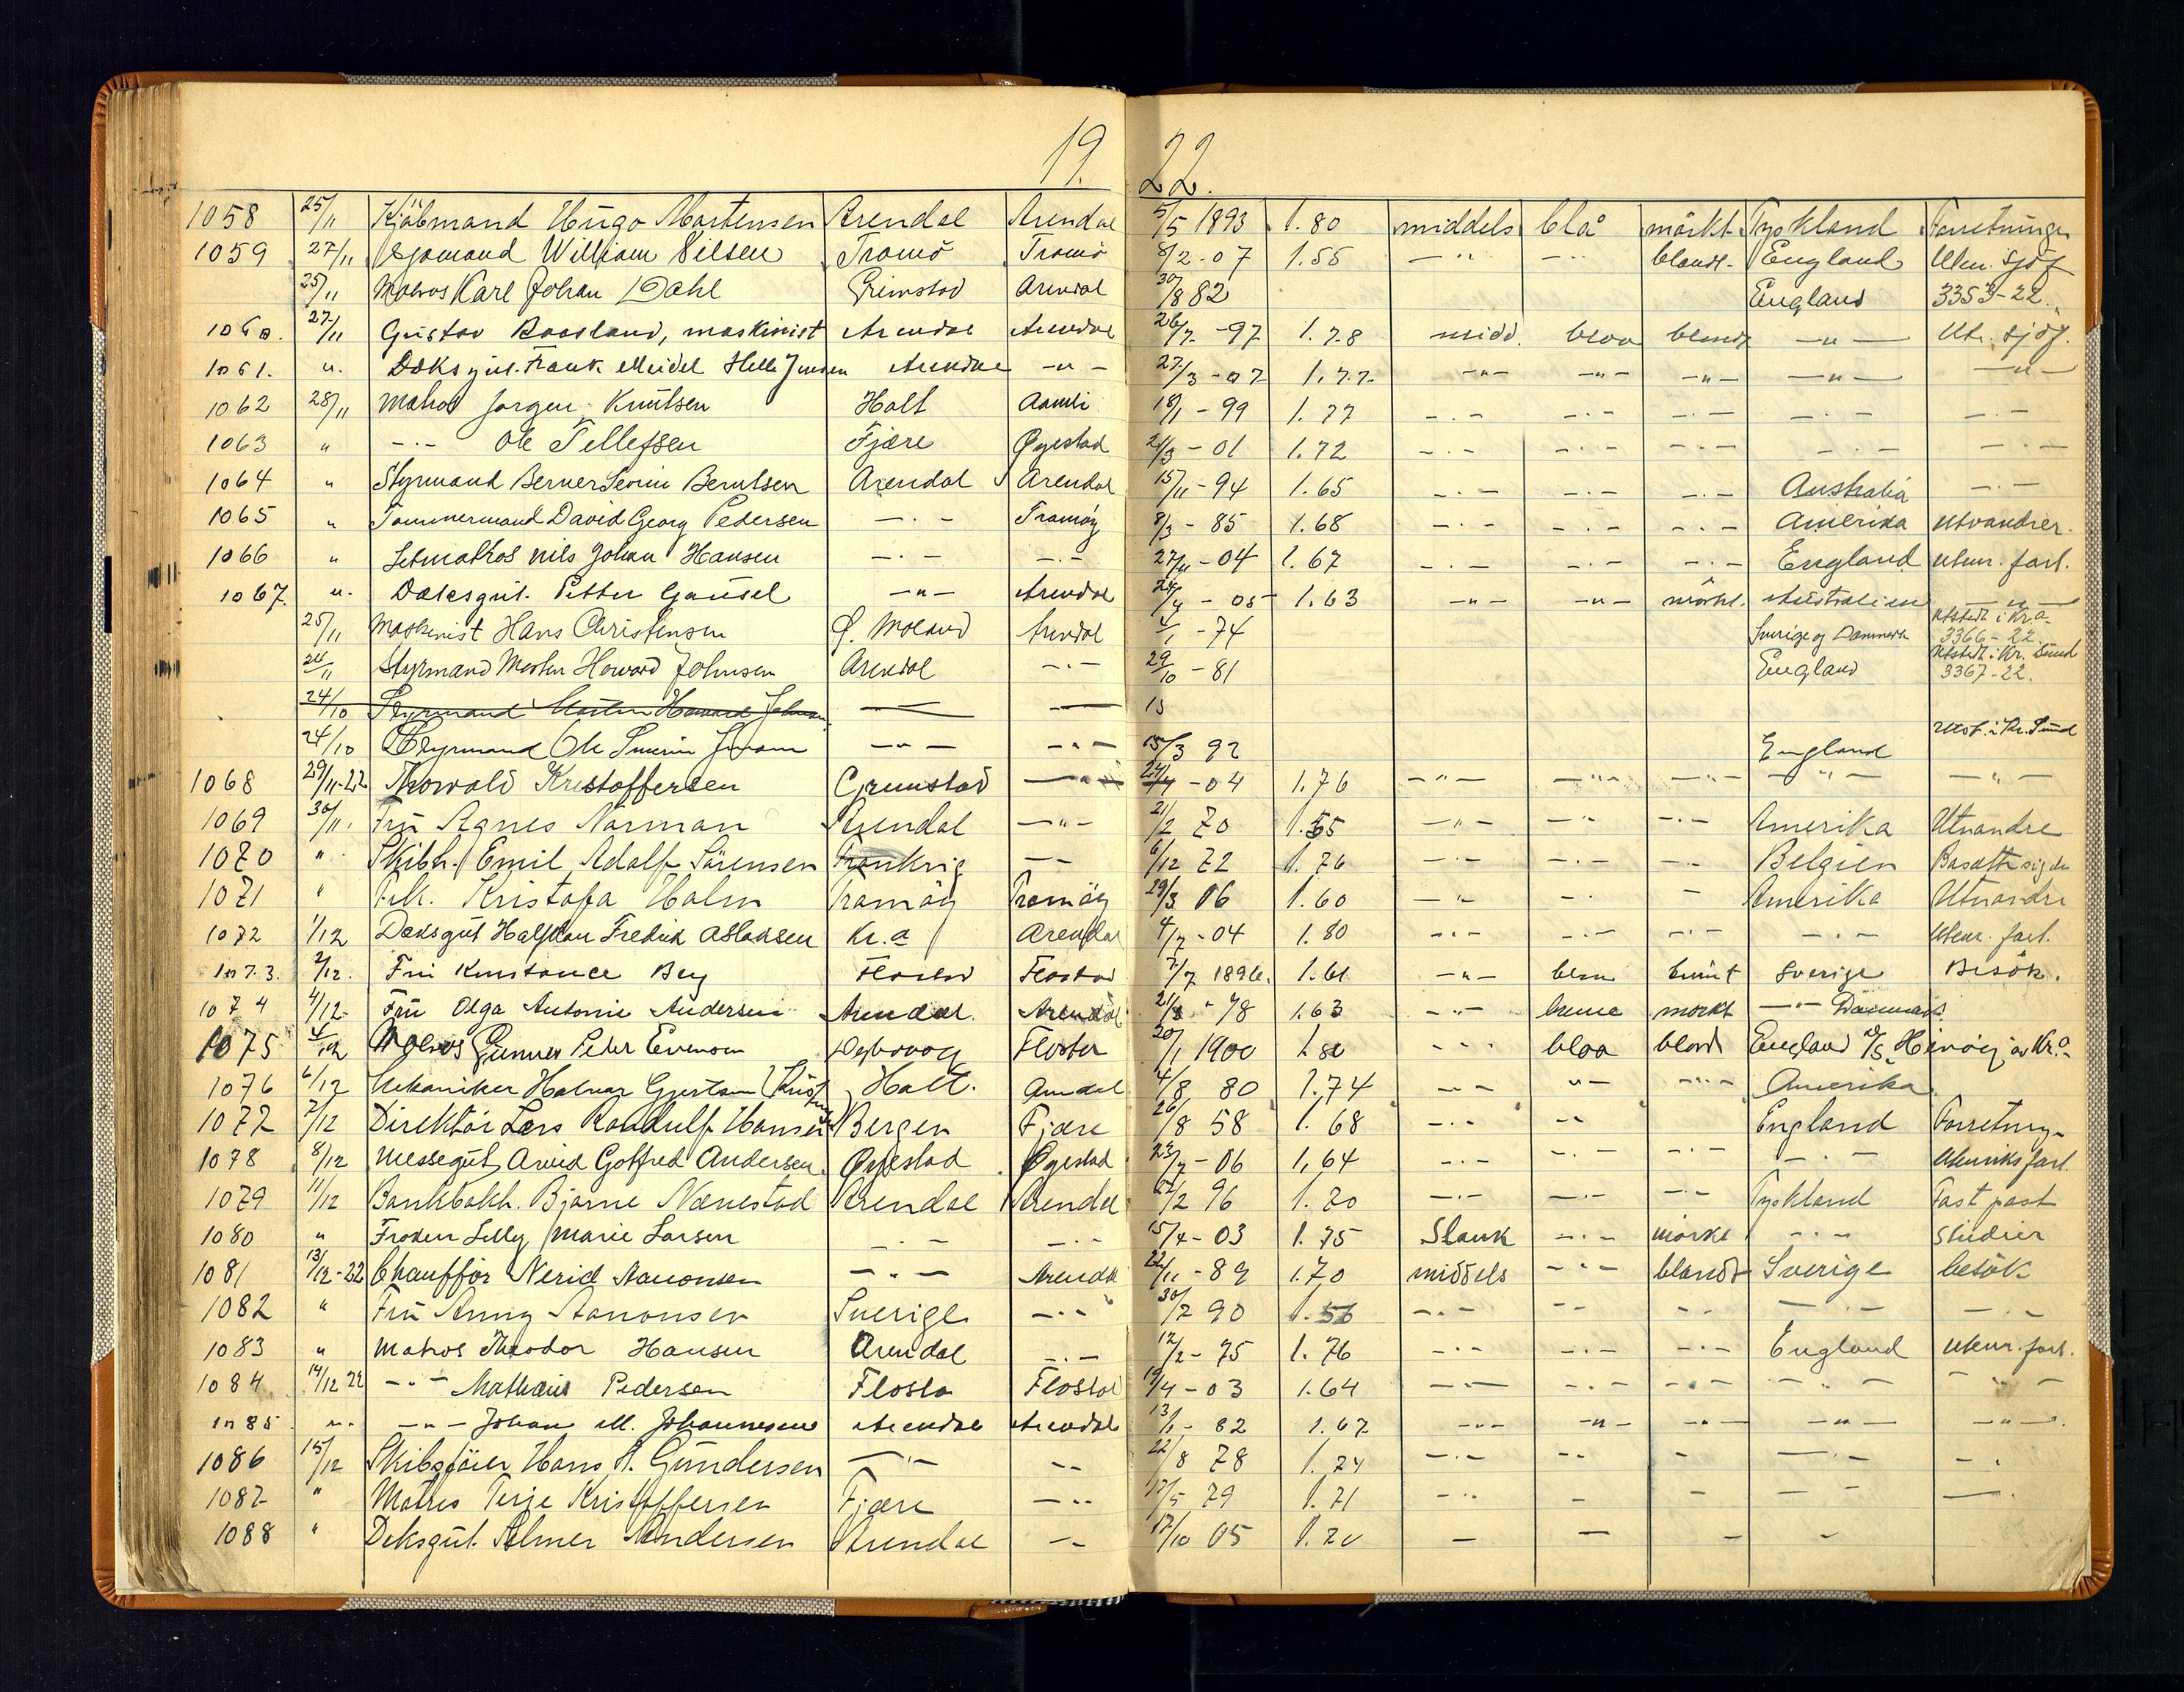 19 22.
1058 25/11 Kjöbmand Hugo Mortensen Arendal Arendal 5/5 1893 1.80 middels blå mörkt Tyskland Forretninger
1059 27/11 Sjömand William Nilsen Tromö Tromö 8/2-07 1.55 -"- -"- blondt England Uten. sjöf
25/11 Matros Karl Johan Dahl Grimstad Arendal 30/8 82 England 3353-22.
1060. 27/11 Gustav Roosland, maskinist Arendal Arendal 26/7-97 1.78 midd. blaa blondt -"- Utr. sjöf.
1061. ". Dæksgut. Frank Meidel Helle Jensen Arendal -"- 27/3-07 1.77 -"- -"- -"- -"- -"-
1062 28/11 Matros Jørgen Knutsen Holt Aamli 18/1-99 1.77 -.- -.- -.- -.- -.-
1063 " -.- Ole Tellefsen Fjære Øyestad 21/3-01 1.72 -.- -.- -.- -.- -.-
1064 " Styrmand Berner Severin Berntsen Arendal Arendal 15/11-94 1.65 -.- -.- -.- Australia -.-
1065 " Tømmermand David Georg Pedersen -.- Tromøy 8/3-85 1.68 -.- -.- -.- Amerika utvandrer.
1066 " Letmatros Nils Johan Hansen -.- -.- 27/11-04 1.67 -.- -.- -.- England utenr. fart.
1067. ". Dæksgut. Petter Gausel -"- Arendal 24/4-05 1.63 -"- -"- mörkt. Australien -"-
25/11 Maskinist Hans Christensen Ø. Moland Arendal 4/1-74 Sverige og Danmark Utstedt i Kr.a. 3366-22
24/11 Styrmand Morten Howard Johnsen Arendal -.- 29/10-81 England Utstedt i Kr. Sund 3367-22.
24/10 Styrmand Morten Howard Johnsen — — 15
24/10 Styrmand Ole -"- -"- 15/3 92 England Utst. i Kr. Sund
1068 29/11-22 Thorvald Kristoffersen Grimstad -"- 24/4-04 1.76 -"- -"- -"- -"- -"-
1069 30/11. Fru Agnes Norman Arendal -"- 21/2 70 1.55 -"- -"- -.- Amerika Utvandre
1070 " Skibh. Emil Adolf Sörensen Frankrig -- 6/12 72 1.76 -.- -.- -.- Belgien Bosætte sig der
1071 " Frk. Kristofa Holm Tromöy Tromöy 29/3 06 1.60 -"- -.- - Amerika Utvandre
1072 1/12 Dæksgut Halfdan Fredrik Aslaksen Kr.a Arendal 4/7-04 1.80 -.- -.- -.- -.- Utenr. fart.
1073. 2/12. Fru Konstance Berg Flostad Flostad 7/7 1896. 1.61 -"- blaa brunt Sverige Besök.
1074 4/12. Fru Olga Antonie Andersen Arendal. Arendal 21/8-78 1.63 -.- brune mörkt -"- Danmark
1075 4/12 Matros Gunner Peter Evensen Dypvaag Flosta 20/1 1900 1.80 -.- blaa blond England D/S. Hinöy av Kr.a.
1076 6/12 Mekaniker Halvar Gjertsen Holt. Arendal 4/8 80 1.74 -.- "- -.- Amerika
1077 7/12 Direktör Lars Randulf Hansen Bergen Fjære 26/8 58 1.68 -.- -- England Forretning-
1078 8/12 Messegut, Arvid Gotfred Andersen Øyestad Øyestad 23/7-06 1,64 -.- -.- -.- -.- Utenriks fart.
1079 11/12 Bankbokh. Bjarne Nænestad Arendal Arendal 1/2 96 1.70 -.- -.- -.- Tyskland Fast post
1080 " Frøken Lilly Marie Larsen -.- -.- 15/4-03 1.75 Slank -.- mørke -.- Studier
1081 13/12-22 Chaufför Nerid Aanonsen -"- Arendal 22/11-89 1.70 middels -"- blondt Sverige besök
1082 " Fru Anny Aanonsen Sverige -.- 30/7 90 1.56 -.- -- -.- -.- -.-
1083 " Matros Theodor Hansen Arendal -.- 12/2-75 1.76 -.- -.- -.- England utenr. fart.
1084 14/12 22 -"- Mathæus Pedersen Flosta Flostad 19/4-03 1.64 -.- -.- -.- -.- -"-
1085. ". -"- Johan M. Johannesen Arendal Arendal 13/1-82 1.67 -"- -"- -"- -"- -"-.
1086 15/12 Skibsföier Hans A. Gundersen -"- -- 22/8 78 1.74 -.- -- - -.- -.
1087 " Matros Terje Kristoffersen Fjære -.- 17/5 79 1.71 -.- - - -- —
1088 " Deksgut. Almer Andersen Arendal -- 17/10 05 1.70 - - - -